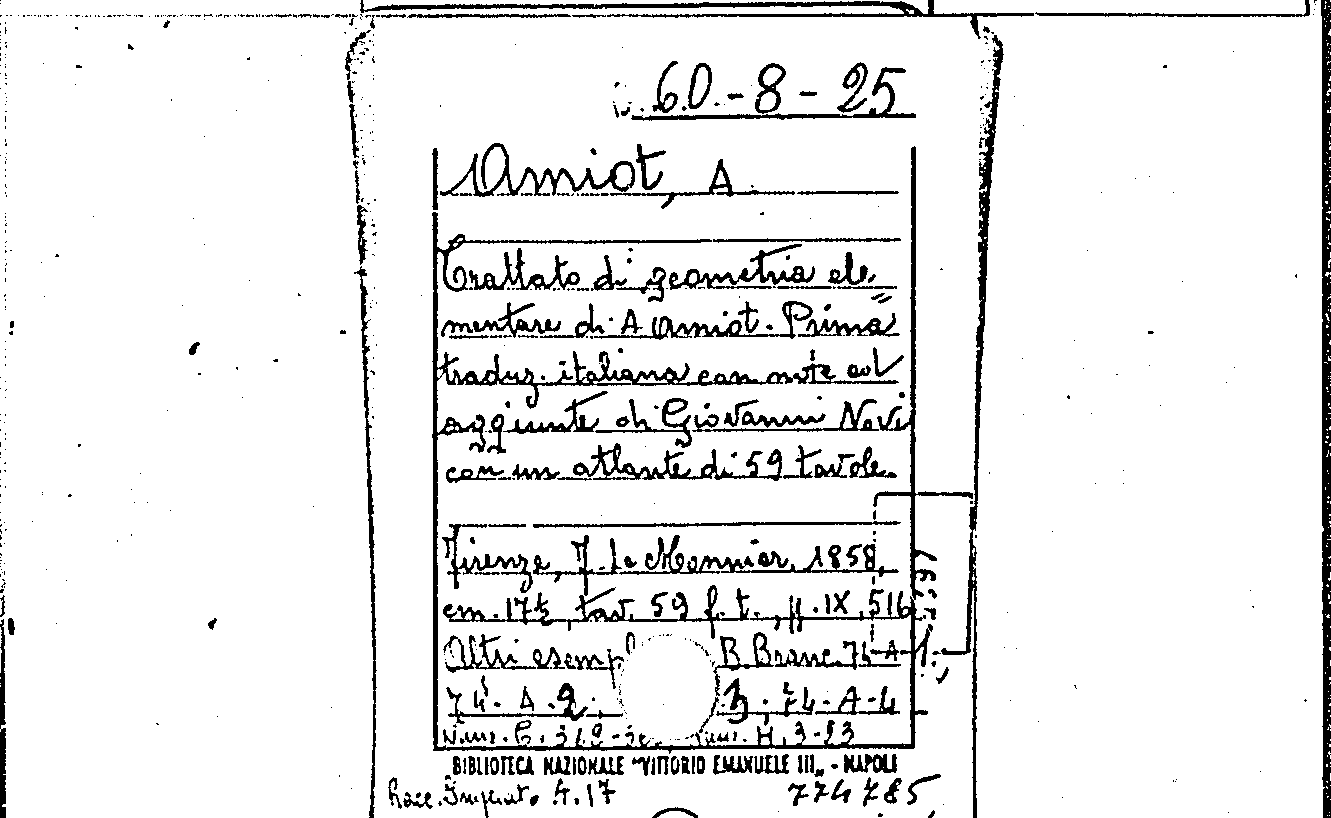 60.-8-25
Amiot, A.
Trattato di geometria ele=
mentare di A Amiot. Prima
traduz. italiana con note ed
aggiunte di Giovanni Novi
con un atlante di 59 tavole.
Firenze, F. Le Monnier, 1858,
cm. 17½, tav. 59 f. t., pp. IX, 516
Altri esempl B. Branc. 74-A-1;
74. A. 2; 3; 74-A-4
H. 3-23
BIBLIOTECA NAZIONALE "VITTORIO EMANUELE III„ - NAPOLI
Racc. 4.17 774785